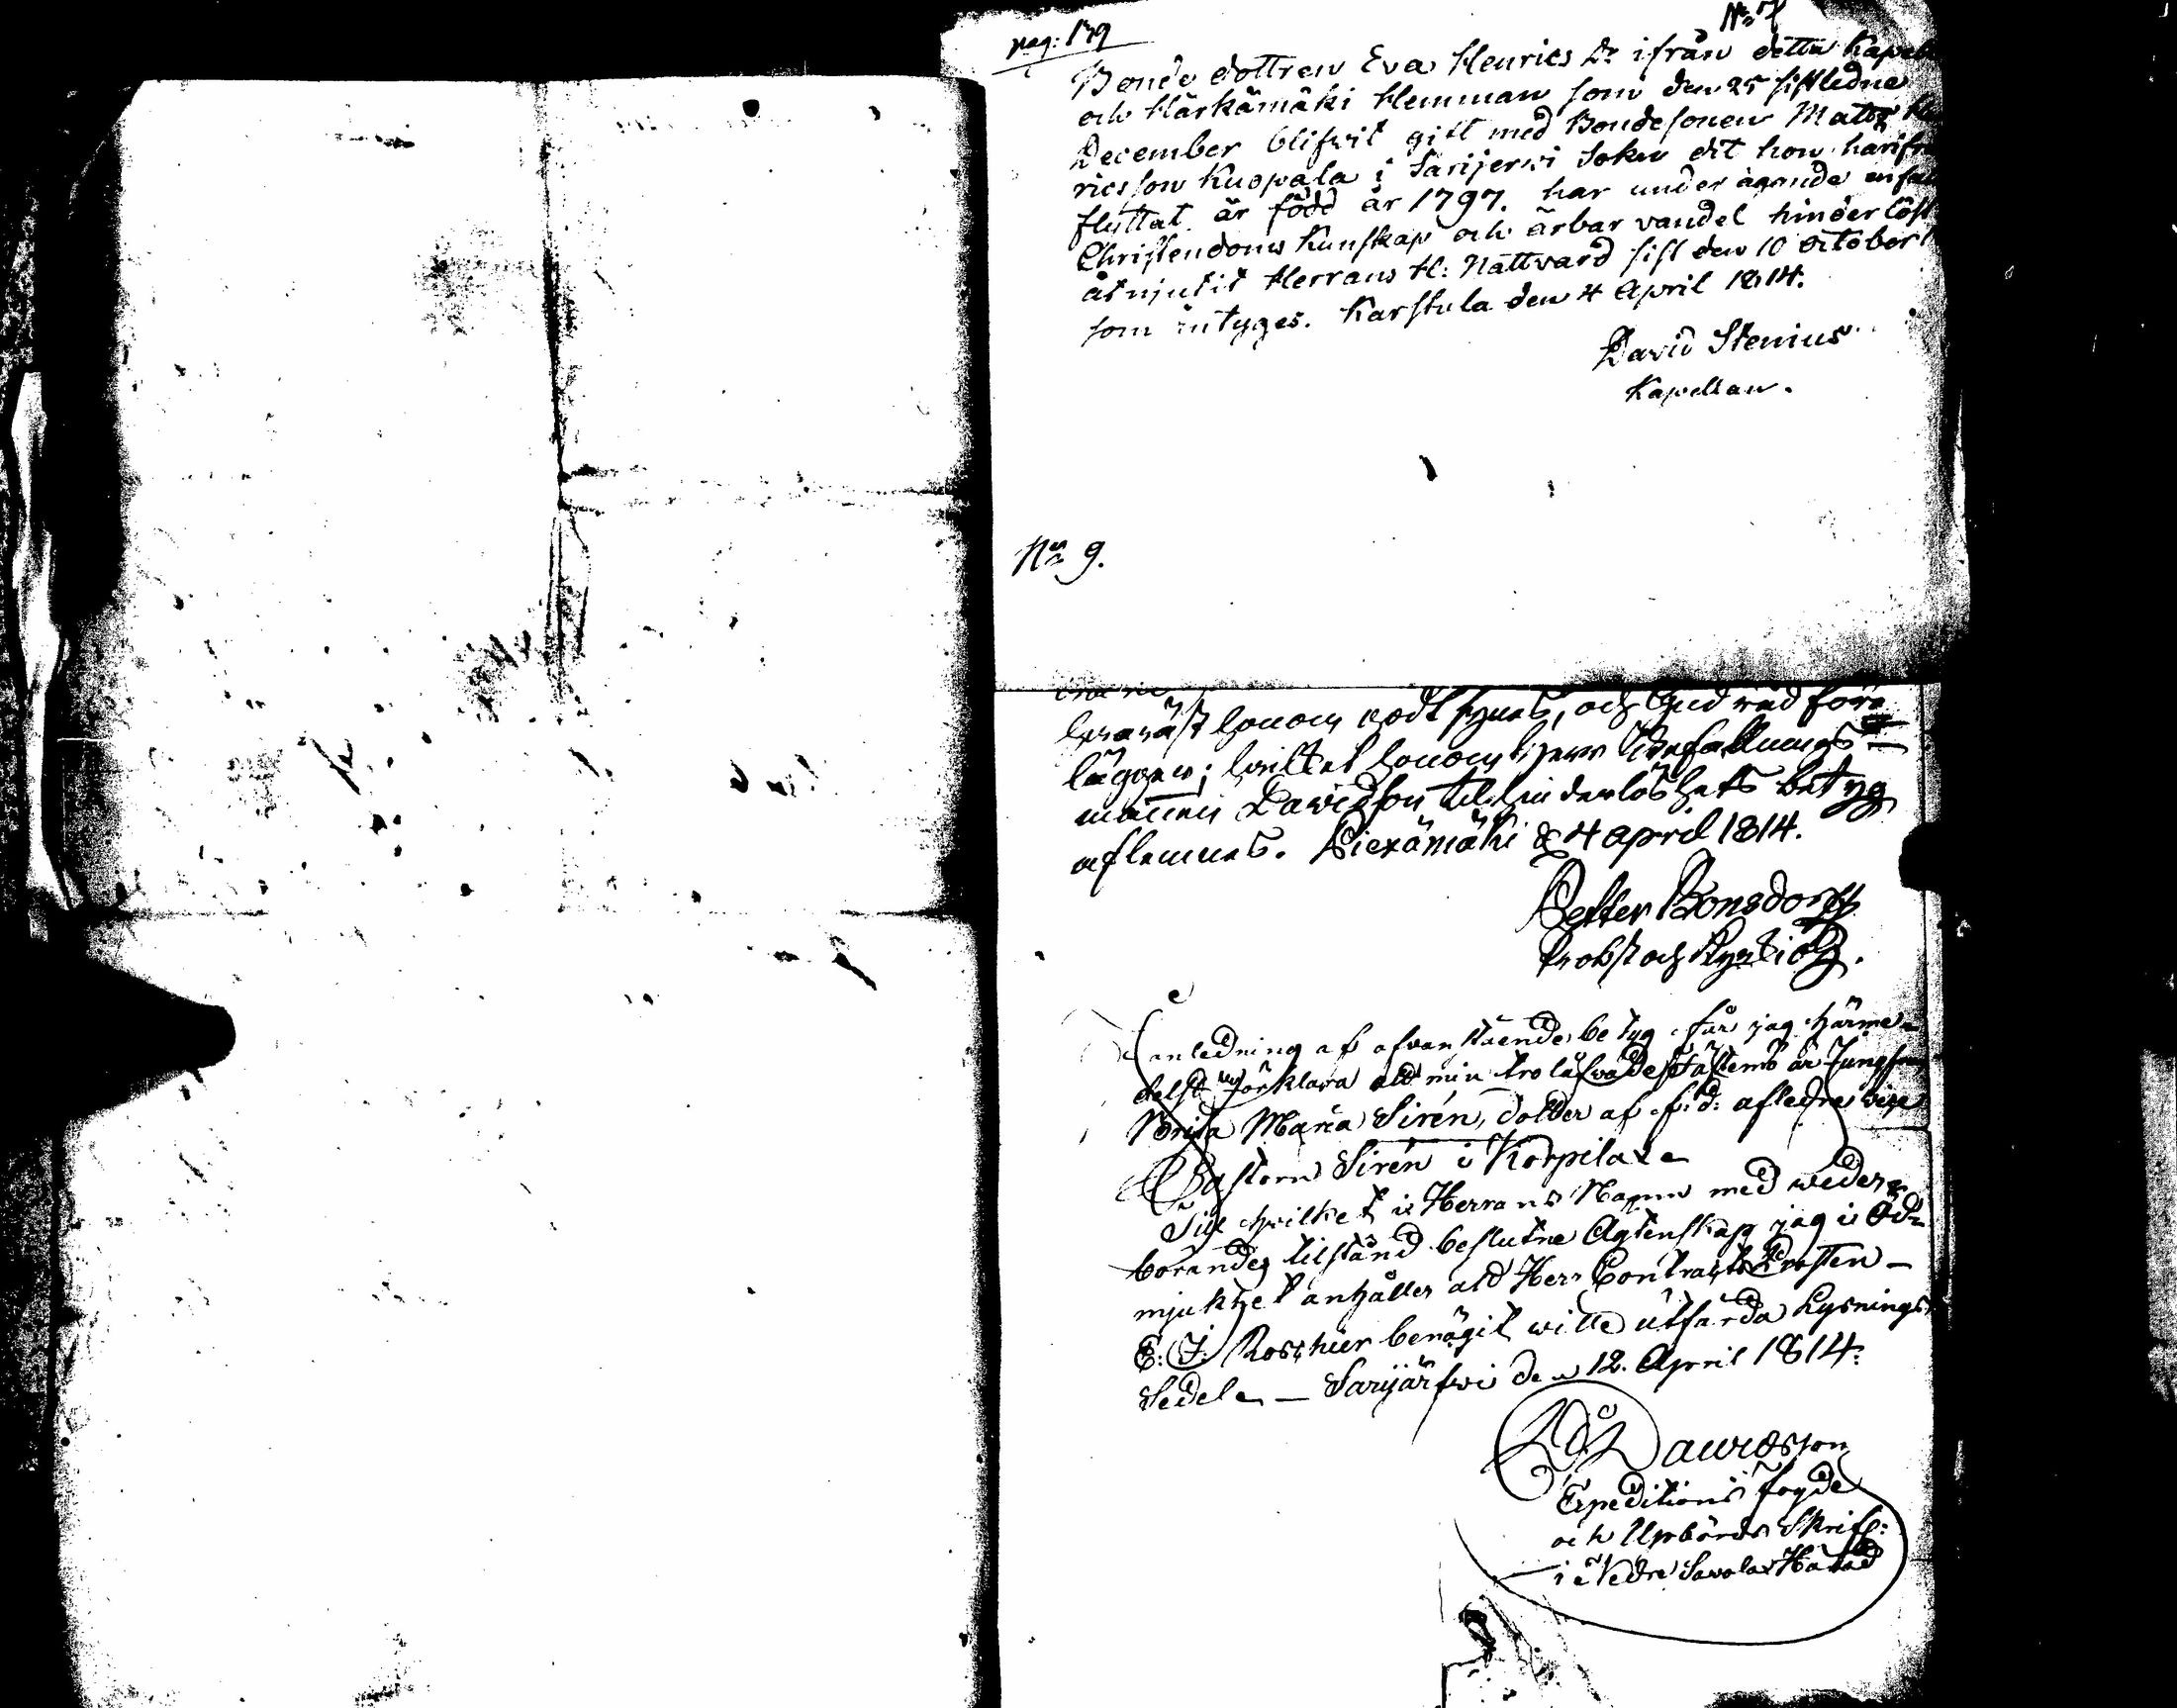 pag: 139
No 7
Bonde dottren Eva Henrics Dr ifrån detta Kapell
och Härkämäki Hemman som den 25 sistledne
December blifvit gift med Bondesonen Matts
ricsson Kuopala i Sarijervi Sokn dit hon härifrån
fluttat är född år 1797. har under ägande
Christendoms Kunskap och ärbar vandel hinderlöst
åtnjutit Herrans H: Nattvard sist den 10 October
som intyges. Karstula den 4 April 1814.
David Stenius
Kapellan.
No 9.
hvaräst honom godt synes, och Gud råd före
lägger; hvilket honom Herr Befallnings=
mannen Davidson til hinderlöshets betyg
aflemnes. Piexämäki d 4 april 1814.
Petter Bonsdorff
Probst och Kyrkioh.
I anledning af ofvanstående betyg får jag härme-
delst förklara att min trolåfvade Fästemö är Jungfru
Brita Maria Sirén, dotter af f: d: afledne vice
Pastorn Sirén i Korpilax
Til hvilket i Herrans Namn med weder-
börandes tilstånd beslutne Ägtenskap jag i Öd-
mjukhet anhåller att Herr Contracts Prosten -
E: J: Roschier benägit wille utfärda Lysnings
Sedel - Sarijärfwi den 12. April 1814.
Davidsson
Expeditions fogde
och Upbörds Skrif:
i Nedre Savolax Härad